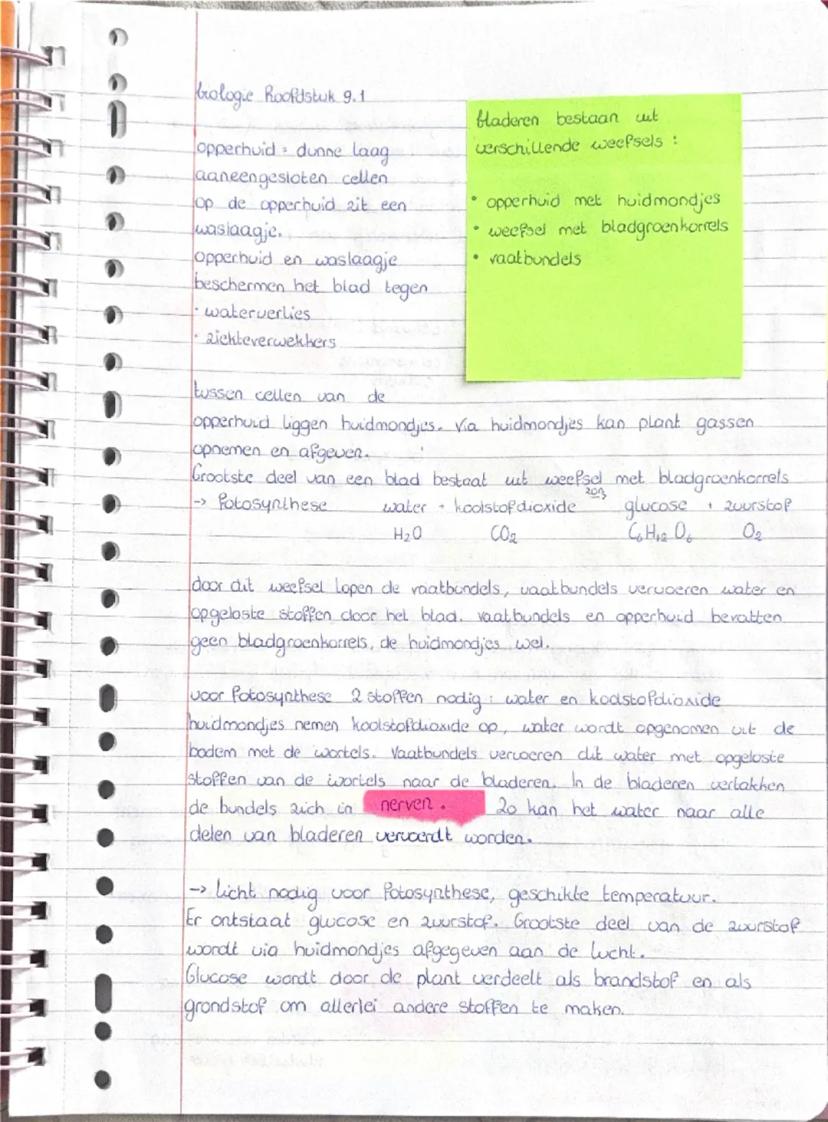 biologie Hoofdstuk 9.1
opperhuid = dunne laag
aaneengesloten cellen
op de opperhuid zit een
waslaagje.
opperhuid en waslaagje
beschermen het blad tegen
· waterverlies
· ziekteverwekkers
bladeren bestaan uit
verschillende weefsels :
• opperhuid met huidmondjes
• weefsel met bladgroenkorrels
• vaatbundels
tussen cellen van de
opperhuid liggen huidmondjes. Via huidmondjes kan plant gassen
opnemen en afgeven.
Grootste deel van een blad bestaat uit weefsel met bladgroenkorrels
→ fotosynthese water + koolstofdioxide zon→ glucose + zuurstof
H₂O CO₂ C₆H₁₂O₆ O₂
door dit weefsel lopen de vaatbundels, vaatbundels vervoeren water en
opgeloste stoffen door het blad. vaatbundels en opperhuid bevatten
geen bladgroenkorrels, de huidmondjes wel.
voor fotosynthese 2 stoffen nodig : water en koolstofdioxide
huidmondjes nemen koolstofdioxide op, water wordt opgenomen uit de
bodem met de wortels. Vaatbundels vervoeren dit water met opgeloste
stoffen van de wortels naar de bladeren. In de bladeren vertakken
de bundels zich in nerven. Zo kan het water naar alle
delen van bladeren vervoerdt worden.
→ licht nodig voor fotosynthese, geschikte temperatuur.
Er ontstaat glucose en zuurstof. Grootste deel van de zuurstof
wordt via huidmondjes afgegeven aan de lucht.
Glucose wordt door de plant verdeelt als brandstof en als
grondstof om allerlei andere stoffen te maken.